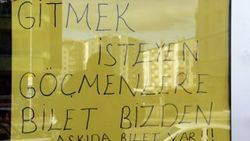 GİTMEK
İSTEYEN
GÖÇMENLERE
BİLET BİZDEN
ASKIDA BİLET VAR!!!